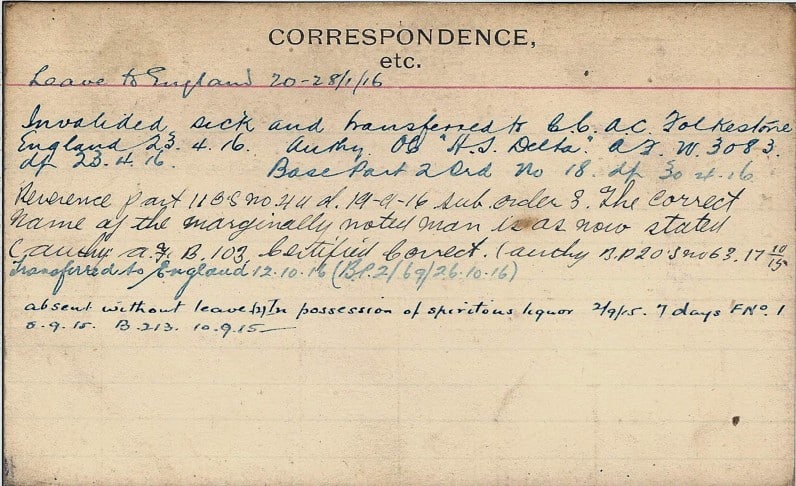 CORRESPONDENCE,
etc.
Leave to England 20-28/1/16
Invalided, sick and transferred to C.C. A.C. Folkestone
England 23. 4. 16. Authy OC "H.S. Delta". A.F. W. 3083.
df 23.4.16. Base Part 2 Ord No 18. df 30.4.16
Reference part 11 no. 44 d. 19-9-16 sub. order 3. The correct
name of the marginally noted man is as now stated
(authy A.F. B. 103. Certified Correct. (authy no 63. 17 10/15
Transferred to England 12.10.16 (B.P.2/69/26.10.16)
absent without leave In possession of spiritous liquor 2/9/15. 7 days F No. 1
8.9.15. B.213. 10.9.15